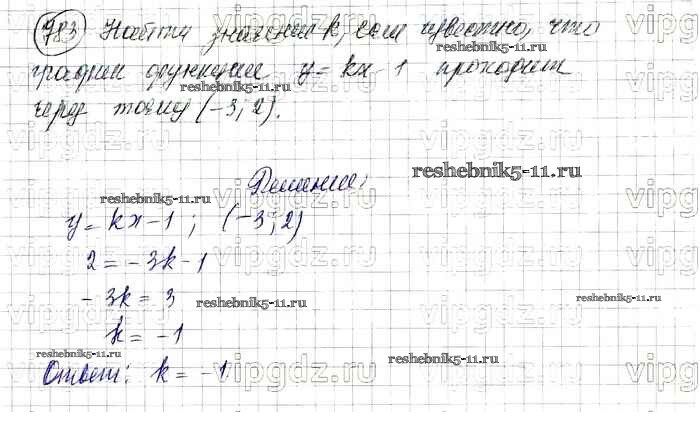 783 Найти значения k, если известно, что
график функции y = kx - 1 проходит
через точку (-3; 2).
Решение:
reshebnik5-11.ru
reshebnik5-11.ru
y = kx - 1 ; (-3; 2)
2 = -3k - 1
-3k = 3
reshebnik5-11.ru
reshebnik5-11.ru
k = -1
reshebnik5-11.ru
reshebnik5-11.ru
Ответ: k = -1
vipgdz.ru